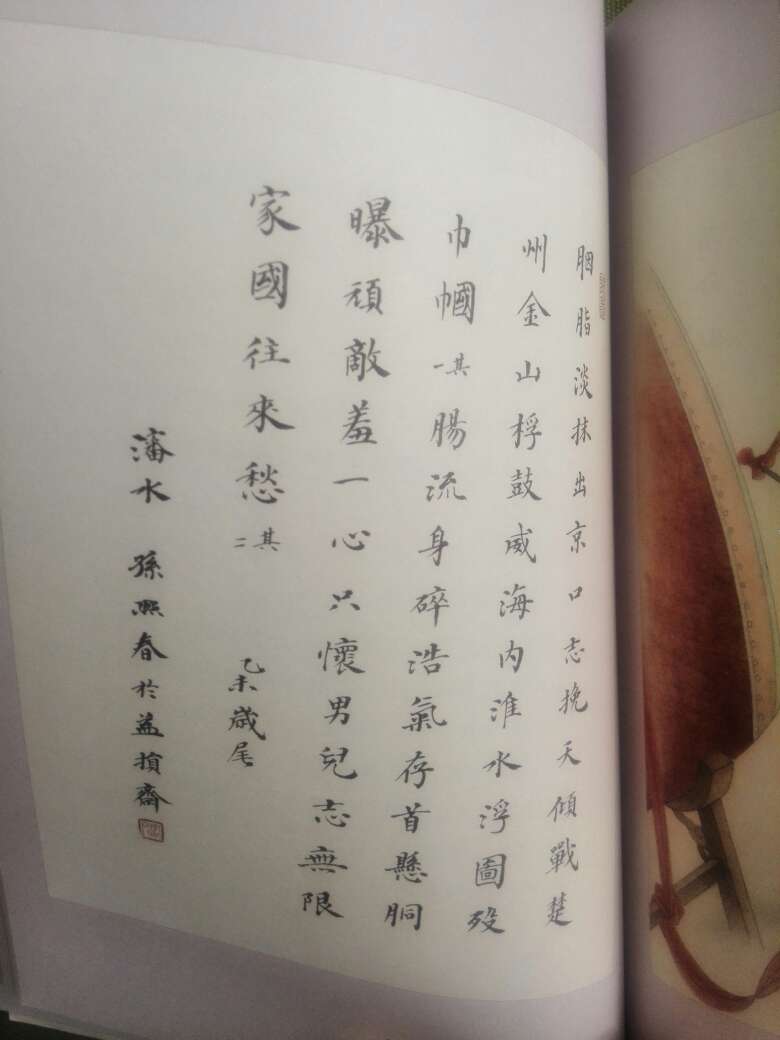 胭脂淡抹出京口志挽天傾戰楚
州金山桴鼓威海内淮水浮圖殁
巾幗其一腸流身碎浩氣存首懸胴
曝頑敵羞一心只懷男兒志無限
家國往來愁其二
乙未歲尾
瀋水孫熙春於益損齋